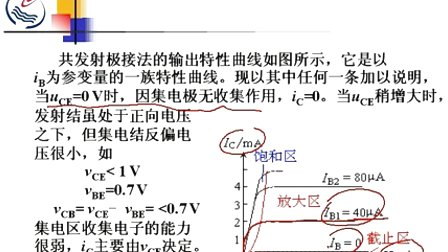 共发射极接法的输出特性曲线如图所示，它是以
iB为参变量的一族特性曲线。现以其中任何一条加以说明，
当uCE=0 V时，因集电极无收集作用，iC=0。当uCE稍增大时，
发射结虽处于正向电压
之下，但集电结反偏电
压很小，如
vCE< 1 V
vBE=0.7V
vCB= vCE- vBE= <0.7V
集电区收集电子的能力
很弱，iC主要由vCE决定。
IC/mA
饱和区
4
IB2 = 80μA
3
放大区
2
IB1= 40μA
1
IB = 0
截止区